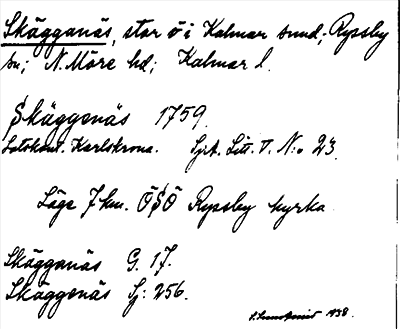 Skägganäs, stor ö i Kalmar sund; Ryssby
sn; N. Möre hd; Kalmar l.
Skäggenäs 1759.
Lotskont. Karlskrona. Sjrt. Litt. V. N:o 23.
Läge 7 km. ÖSÖ Ryssby kyrka
Skägganäs G. 17.
Skäggenäs Sj: 256.
1938.